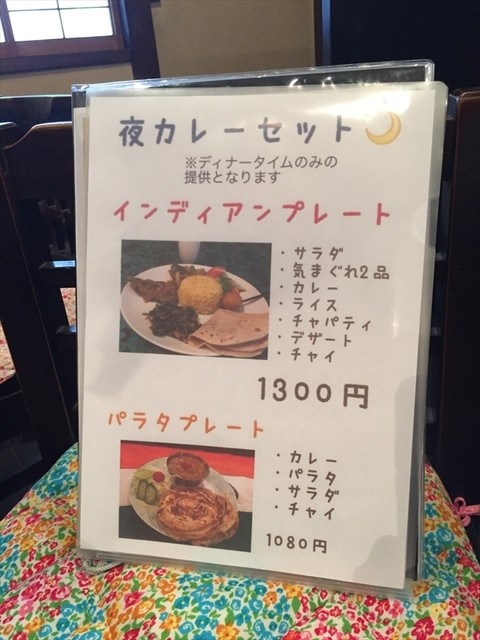 夜カレーセット
※ディナータイムのみの
提供となります
インディアンプレート
・サラダ
・気まぐれ2品
・カレー
・ライス
・チャパティ
・デザート
・チャイ
1300円
パラタプレート
・カレー
・パラタ
・サラダ
・チャイ
1080円